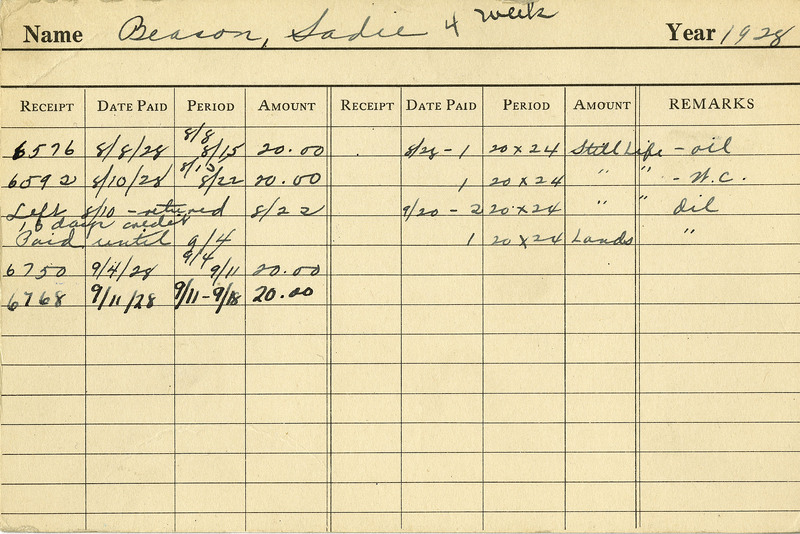 Name Beason, Sadie 4 week Year 1928
RECEIPT DATE PAID PERIOD AMOUNT RECEIPT DATE PAID PERIOD AMOUNT REMARKS
6576 8/8/28 8/8 8/15 20.00 8/28 - 1 20 x 24 Still Life - oil
6592 8/10/28 8/15 8/22 20.00 1 20 x 24 " " - W.C.
Left 8/10 - returned 8/22 9/20 - 2 20 x 24 " " Oil
days credit
Paid until 9/4 1 20 x 24 Lands "
6750 9/4/28 9/4 9/11 20.00
6768 9/11/28 9/11-9/18 20.00